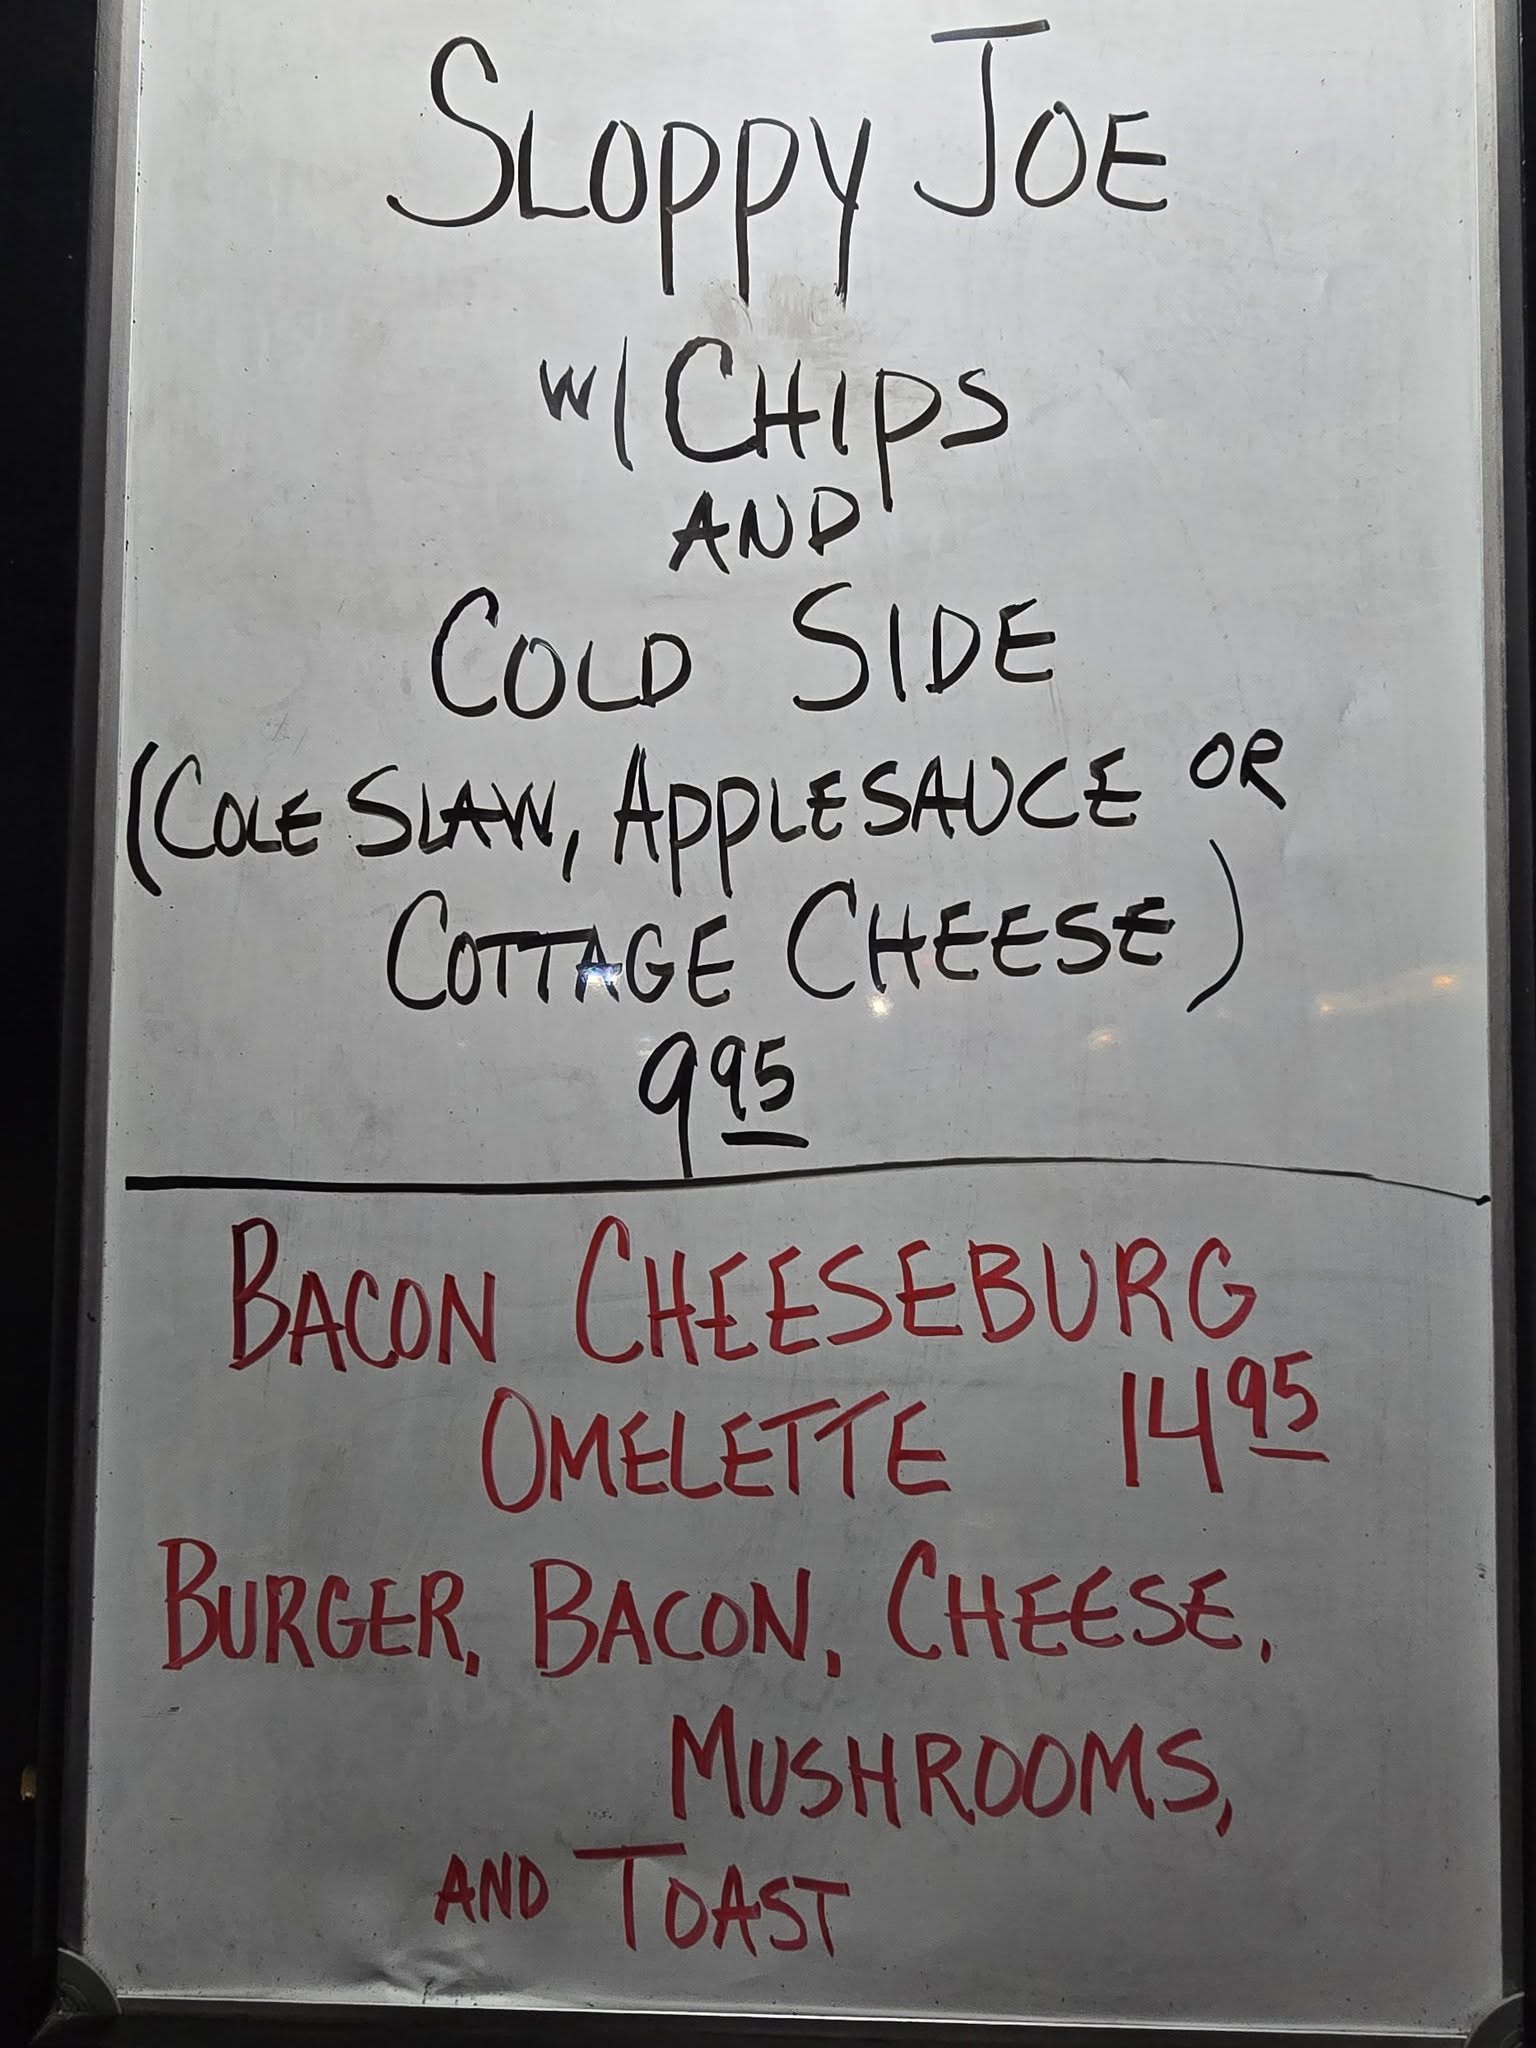 SLOPPY JOE
w/ CHIPS
AND
COLD SIDE
(COLE SLAW, APPLESAUCE OR
COTTAGE CHEESE)
9 95
BACON CHEESEBURG
OMELETTE 14 95
BURGER, BACON, CHEESE,
MUSHROOMS,
AND TOAST